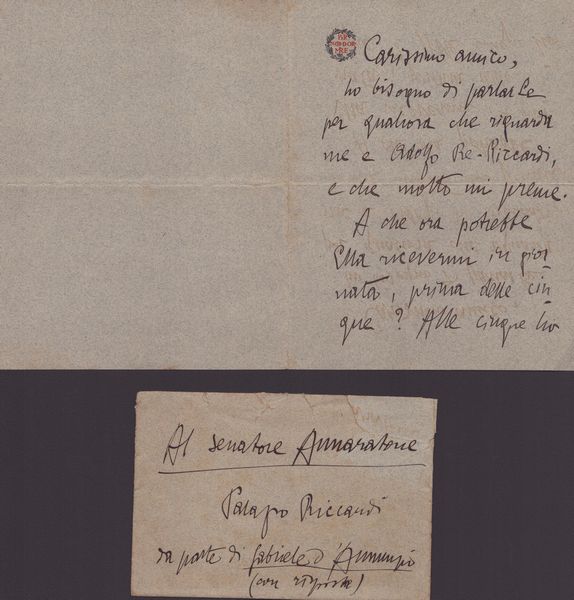 PER
NON DOR
MIRE
Carissimo amico,
ho bisogno di parlarLe
per qualcosa che riguarda
me e Adolfo Re-Riccardi,
e che molto mi preme.
A che ora potrebbe
Ella ricevermi in gior-
nata, prima delle cin-
que? Alle cinque ho
Al senatore Annaratone
Palazzo Riccardi
da parte di Gabriele d'Annunzio
(con risposta)